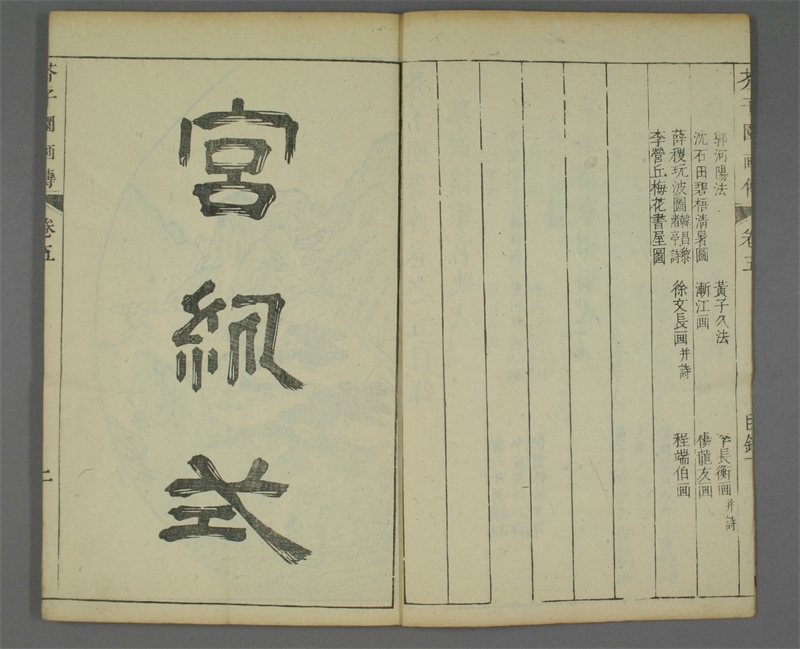 芥子園画傳
卷五
目錄
郭河陽法
黃子久法
李長蘅画并詩
沈石田碧梧清暑圖
漸江画
楊龍友画
薛稷玩波圖
韓昌黎
亭詩
徐文長画并詩
程端伯画
李營丘梅花書屋圖
宮紈式
芥子園画傳
卷五
二